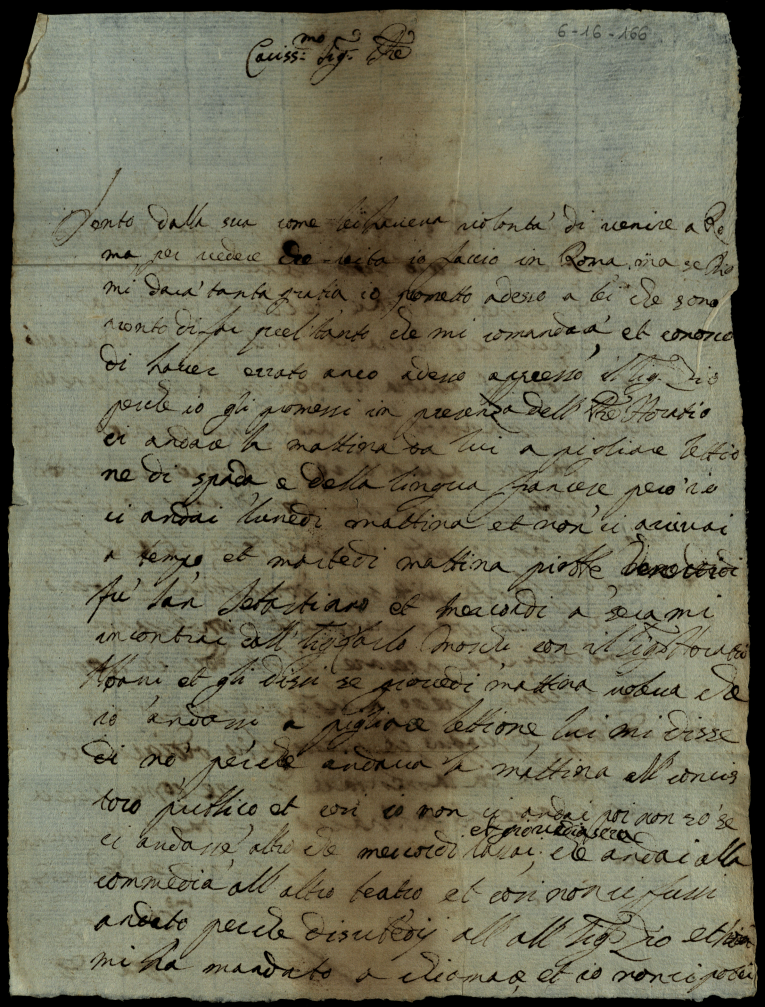 6-16-166
Cariss.mo Sig.r P̃re
Sento dalla sua come lei haveva volontà di venire a Ro
ma per vedere che vita io faccio in Roma, ma se Dio
mi darà tanta gratia io prometto adesso a lei che sono
pronto di far quel tanto che mi comandarà, et conosco
di haver errato anco adesso appresso il Sig. Zio
perche io gli promessi in presenza dell P̃re Horatio
ci andare la mattina da lui a pigliare lettio
ne di spada e della lingua francese però io
ci andai lunedi mattina et non ci arivai
a tempo et martedi mattina
fù San Sebastiano et mercordi a sera mi
incontrai dall Sig. Carlo Moschi con il Sig.
Albani et gli dissi se giovedi mattina voleva che
io andassi a pigliare lettione lui mi disse
di nò perche andava la mattina all concis
toro publico et cosi io non ci andai poi non sò se
et giovedi a sera
ci andasse altro che mercordi che andai alla
commedia all altro teatro et cosi non ci fussi
andato perche all all Sig. Zio et non
mi ha mandato a chiamare et io non ci